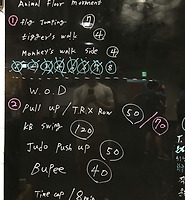 Animal Floor Movment
① Flog Jumping ⑦
tigger's walk ④
Monkey's walk side ④
W.O.D
② Pull up / T.R.X Row 50 / 70
KB Swing 120
Judo Push up 50
Bupee 40
Time cap / 8min